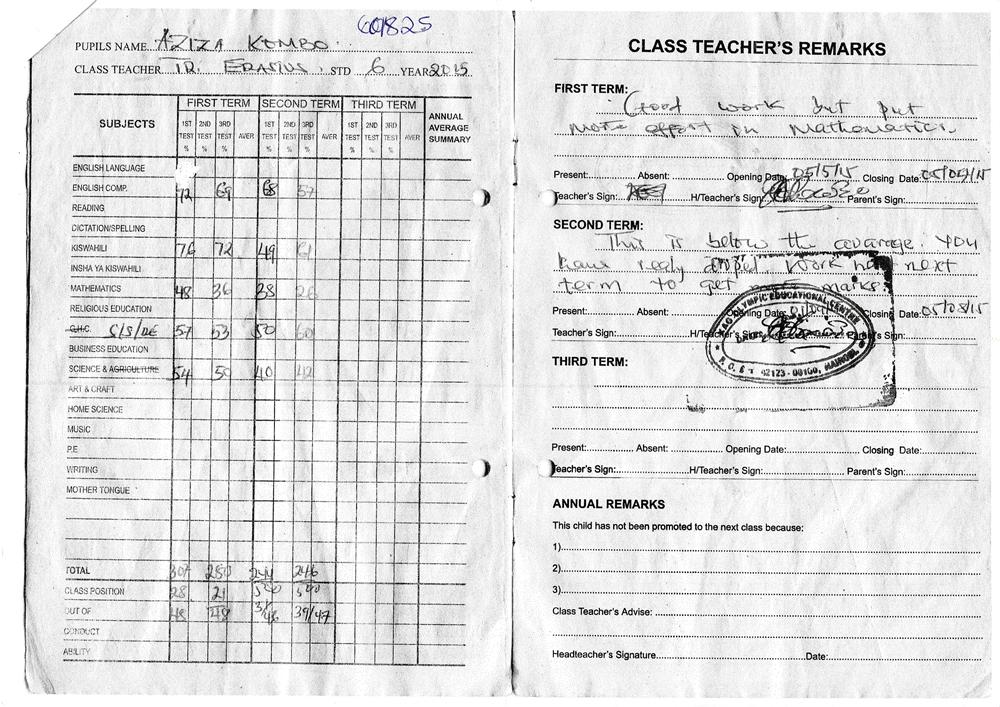 601825
PUPILS NAME AZIZA KOMBO
CLASS TEACHER TR. ERASTUS STD 6 YEAR 2015
SUBJECTS FIRST TERM SECOND TERM THIRD TERM ANNUAL AVERAGE SUMMARY
1ST TEST % 2ND TEST % 3RD TEST % AVER 1ST TEST % 2ND TEST % 3RD TEST % AVER 1ST TEST % 2ND TEST % 3RD TEST % AVER
ENGLISH LANGUAGE
ENGLISH COMP. 72 69 68 57
READING
DICTATION/SPELLING
KISWAHILI 76 72 49 61
INSHA YA KISWAHILI
MATHEMATICS 48 36 38 26
RELIGIOUS EDUCATION
G.H.C. S/S/RE 57 53 50 60
BUSINESS EDUCATION
SCIENCE & AGRICULTURE 54 50 40 42
ART & CRAFT
HOME SCIENCE
MUSIC
P.E
WRITING
MOTHER TONGUE
TOTAL 307 280 244 246
CLASS POSITION 28 21 500 500
OUT OF 48 48 39/47
CONDUCT
ABILITY
CLASS TEACHER'S REMARKS
FIRST TERM:
Good work but put
more effort in Mathematics.
Present: Absent: Opening Date: 05/5/15 Closing Date:
Teacher's Sign: H/Teacher's Sign: Parent's Sign:
SECOND TERM:
This is below the avarage. You
have realy droped. Work hard next
term to get more marks.
Present: Absent: Opening Date: Closing Date: 05/08/15
Teacher's Sign: H/Teacher's Sign: Parent's Sign:
OLYMPIC EDUCATIONAL CENTRE
42123 - 00100, NAIROBI
THIRD TERM:
Present: Absent: Opening Date: Closing Date:
Teacher's Sign: H/Teacher's Sign: Parent's Sign:
ANNUAL REMARKS
This child has not been promoted to the next class because:
1)
2)
3)
Class Teacher's Advise:
Headteacher's Signature Date: